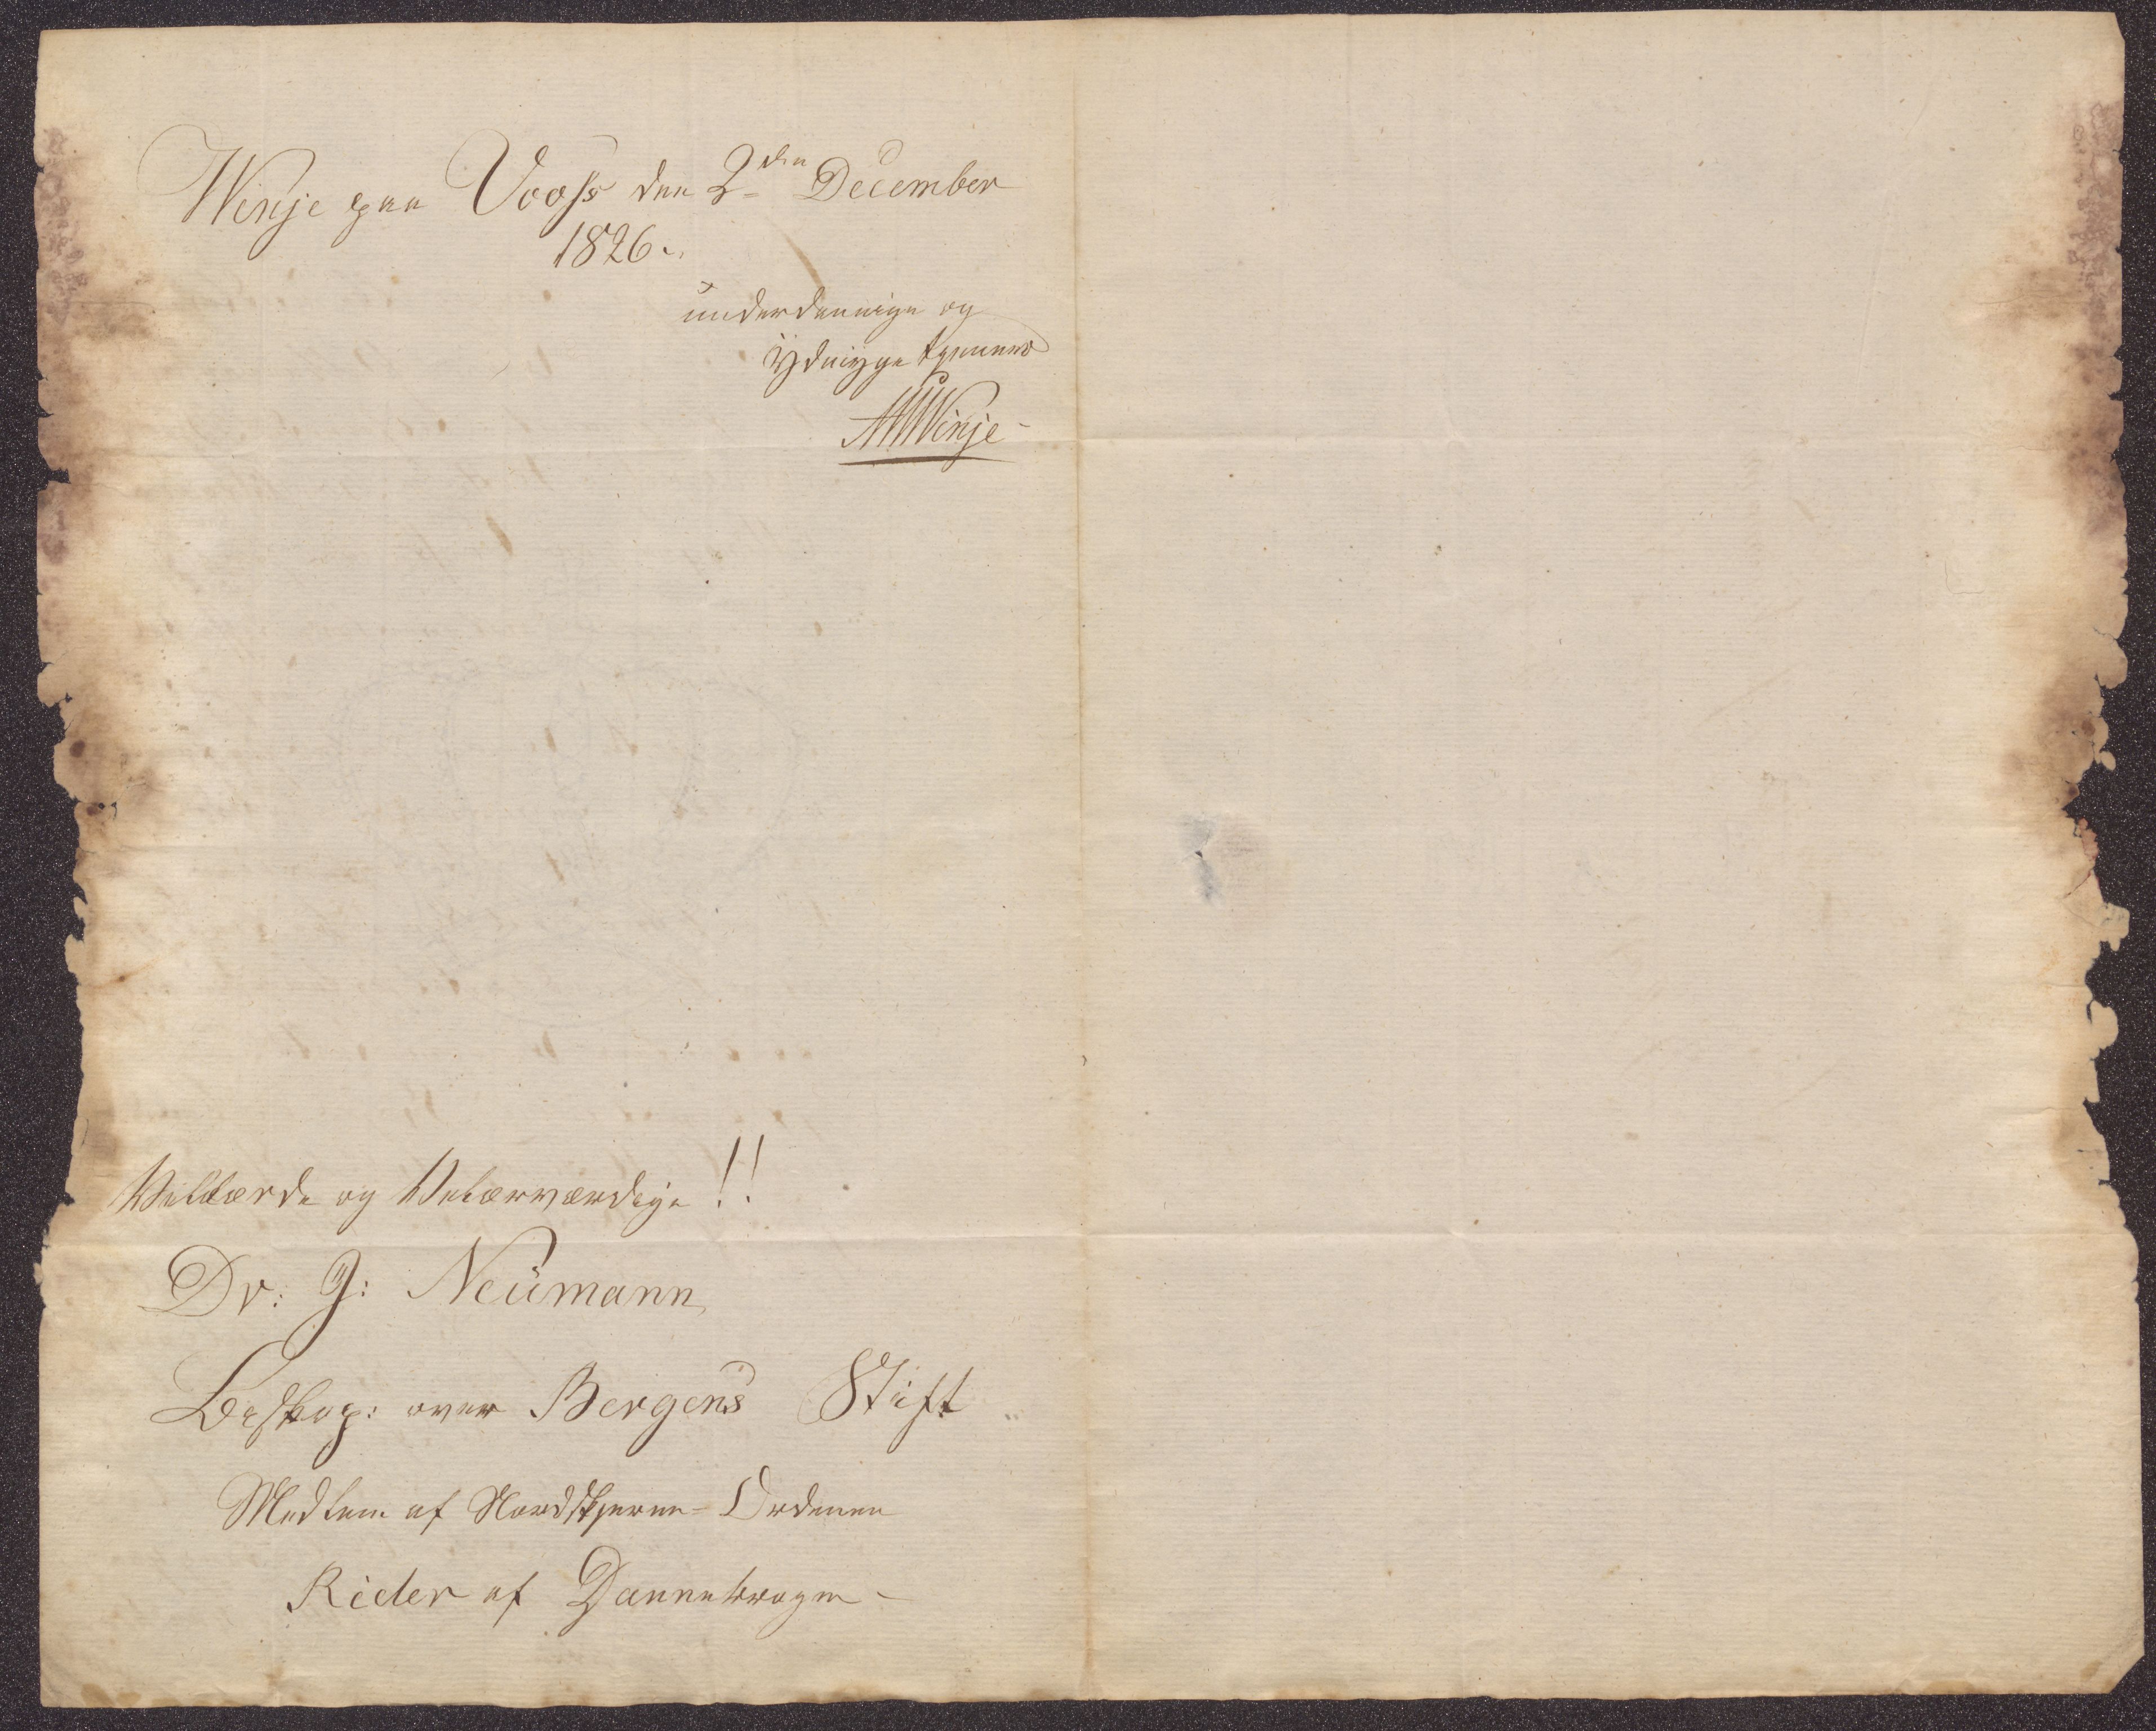 Winje paa Vooss den 2den December
1826.
underdanige og
ydmyge tjener
Winje
Vellærde og Velærværdige!!
Dr: J: Neumann
Biskop: over Bergens Stift
Medlem af Nordstjerne-Ordenen
Rider af Dannebrogen